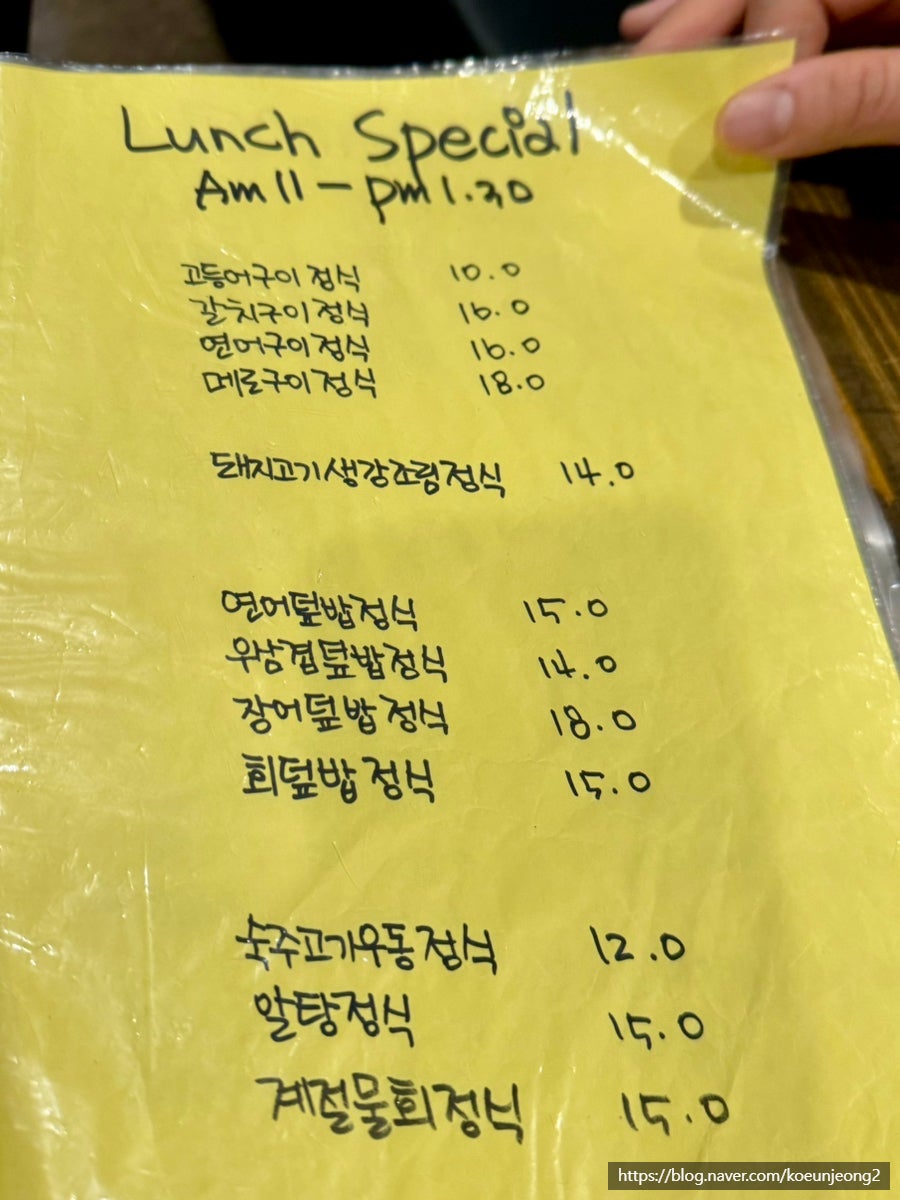 Lunch Special
Am 11 - pm 1.30
고등어구이 정식 10.0
갈치구이정식 16.0
연어구이정식 16.0
메로구이정식 18.0
돼지고기생강조림정식 14.0
연어덮밥정식 15.0
우삼겹덮밥정식 14.0
장어덮밥정식 18.0
회덮밥정식 15.0
숙주고기우동정식 12.0
알탕정식 15.0
계절물회정식 15.0
https://blog.naver.com/koeunjeong2